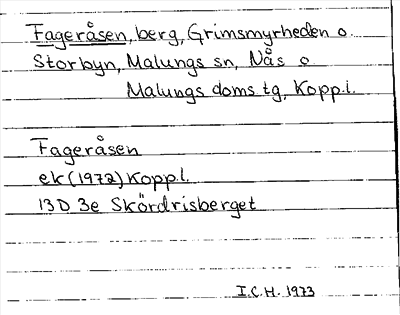 Fageråsen, berg, Grimsmyrheden o.
Storbyn, Malungs sn, Nås o
Malungs doms tg, Kopp.l.
Fageråsen
ek (1972) Kopp.l.
13D 3e Skördrisberget
I.C.H. 1973